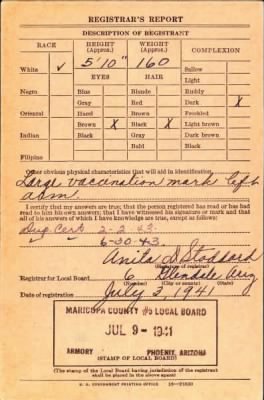 REGISTRAR'S REPORT
DESCRIPTION OF REGISTRANT
RACE HEIGHT (Approx.) WEIGHT (Approx.) COMPLEXION
White ✓ 5'10" 160 Sallow
EYES HAIR Light
Negro Blue Blonde Ruddy
Gray Red Dark X
Oriental Hazel Brown Freckled
Brown X Black X Light brown
Indian Black Gray Dark brown
Bald Black
Filipino
Other obvious physical characteristics that will aid in identification
Large vaccination mark left
arm.
I certify that my answers are true; that the person registered has read or has had
read to him his own answers; that I have witnessed his signature or mark and that
all of his answers of which I have knowledge are true, except as follows:
Dup. Cert 2-2-43
6-30-43
Anita D Stoddard
(Signature of registrar)
Registrar for Local Board 6 Glendale Ariz
Date of registration July 3, 1941
MARICOPA COUNTY #5 LOCAL BOARD
JUL 9 - 1941
ARMORY PHOENIX, ARIZONA
(STAMP OF LOCAL BOARD)
(The stamp of the Local Board having jurisdiction of the registrant
shall be placed in the above space)
U. S. GOVERNMENT PRINTING OFFICE